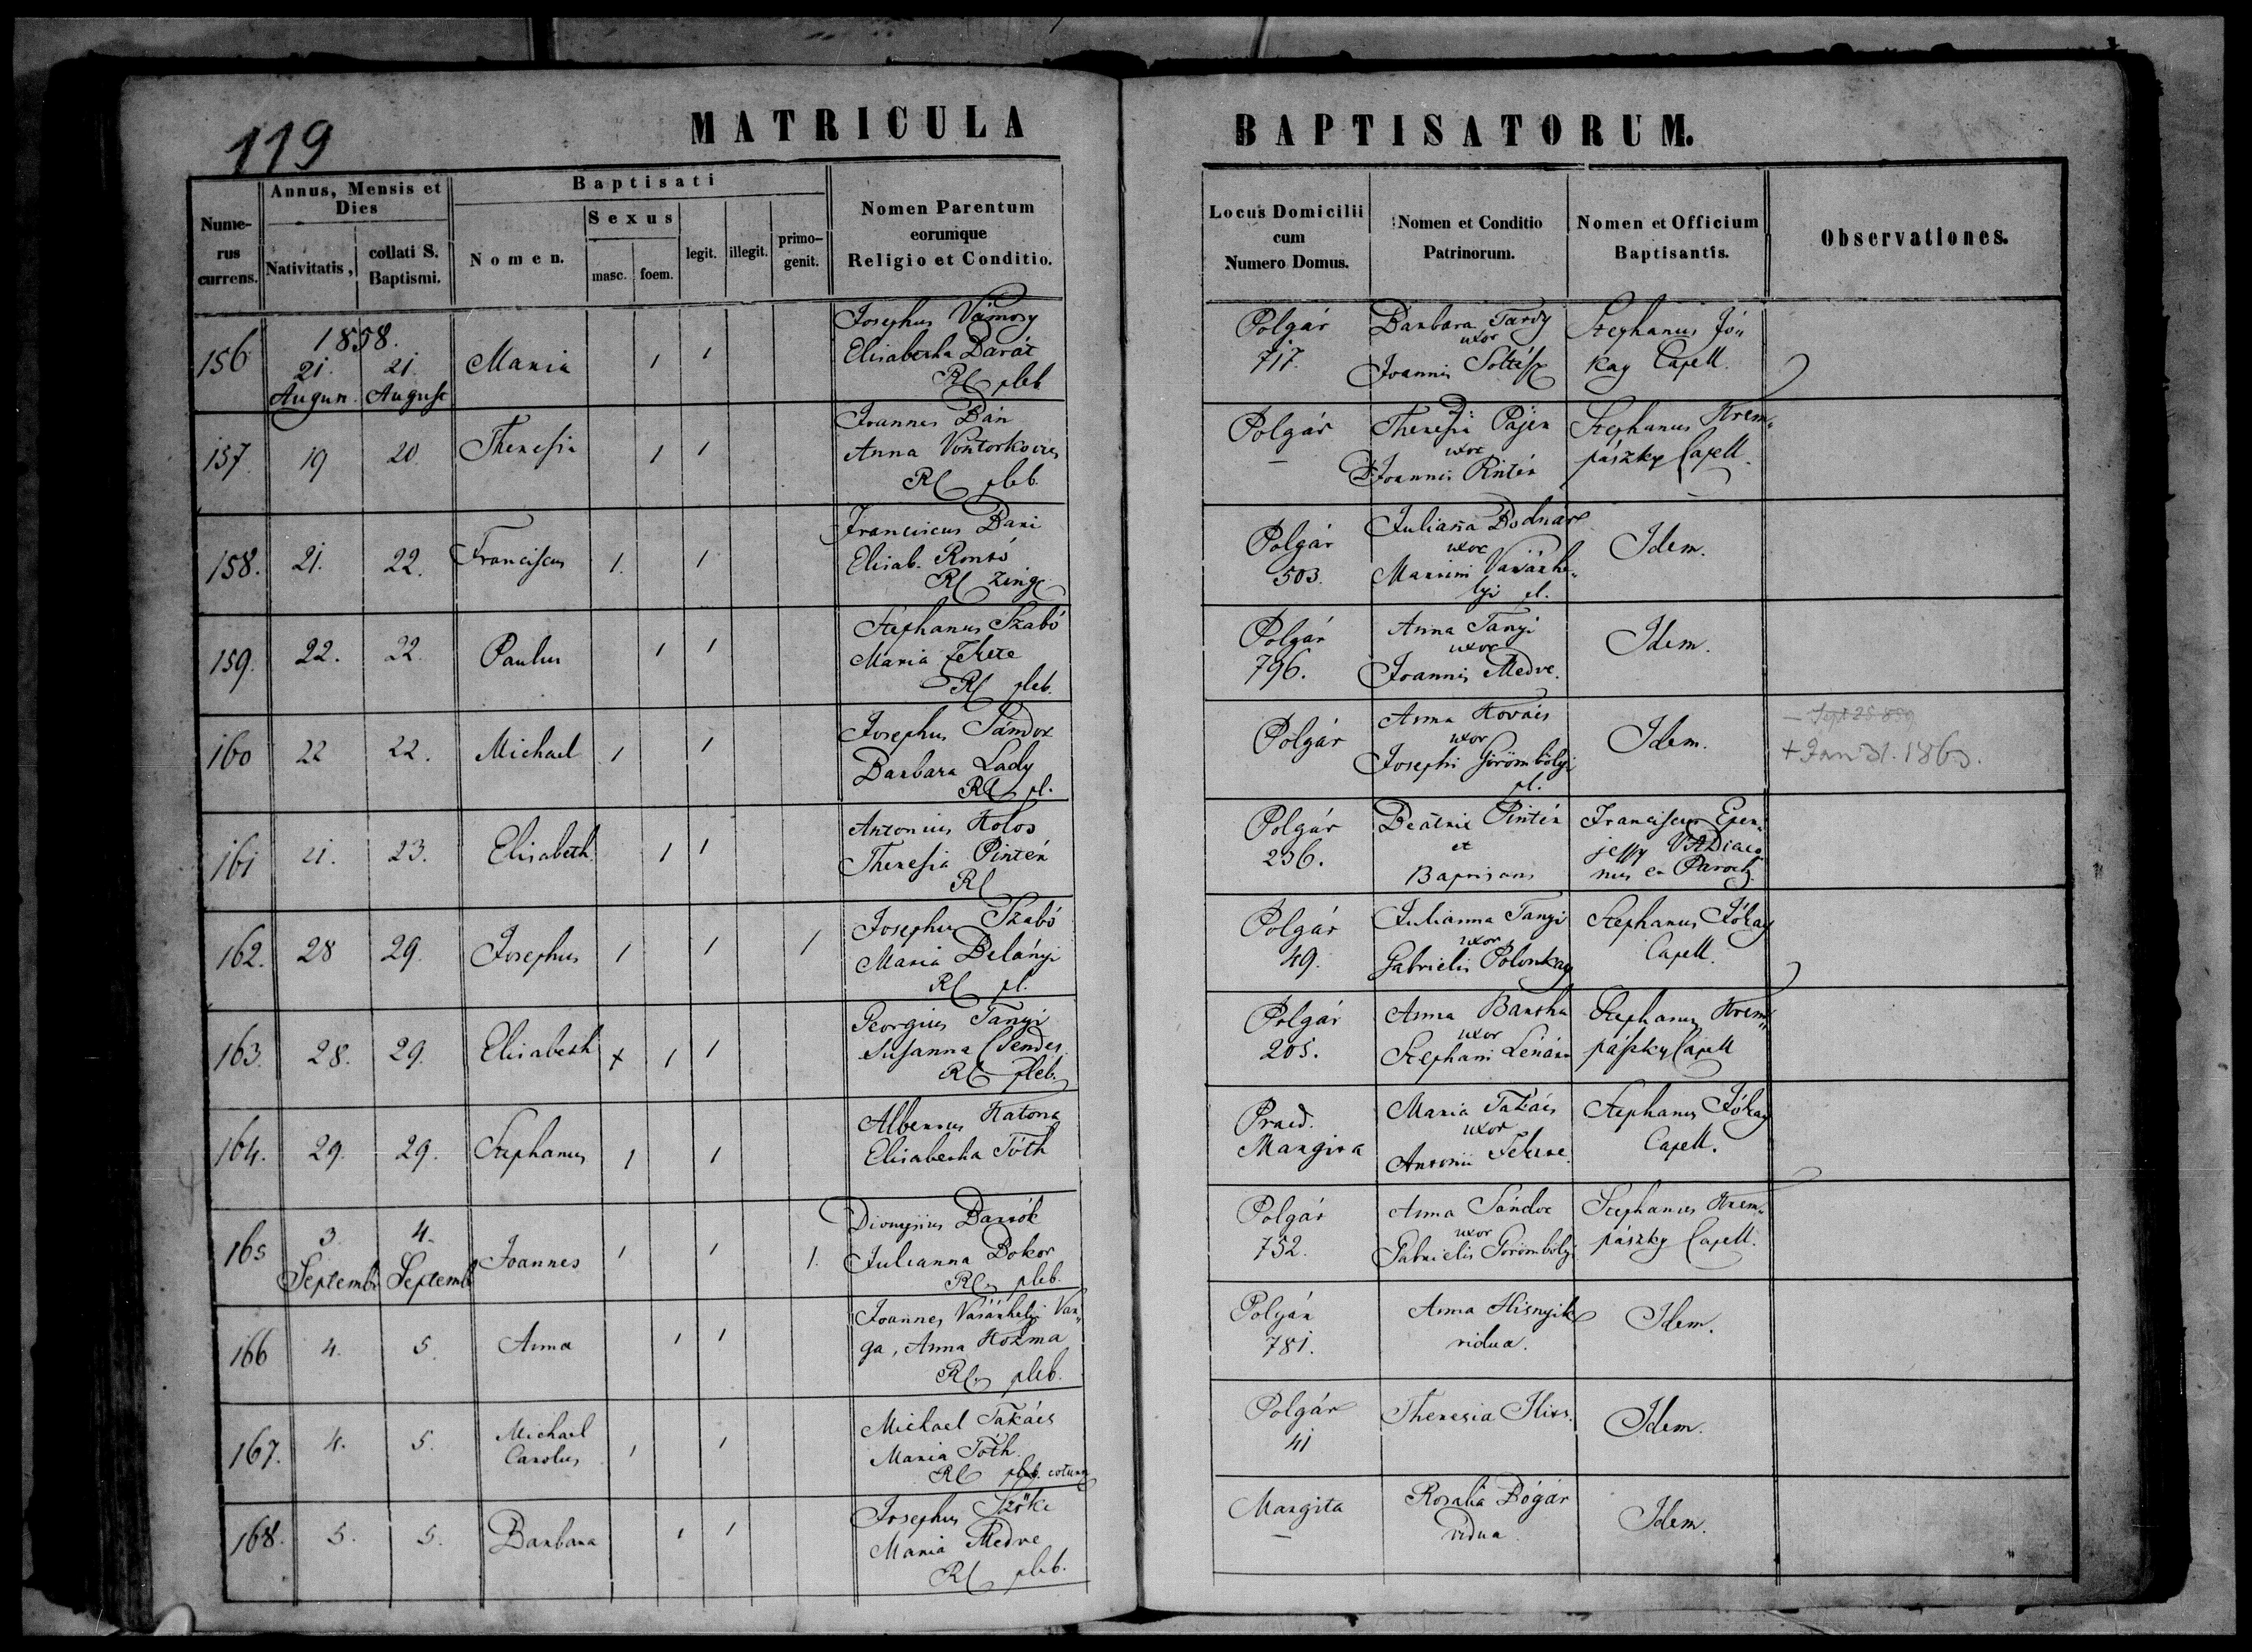 119
MATRICULA BAPTISATORUM.
Numerus currens. | Annus, Mensis et Dies Nativitatis, | collati S. Baptismi. | Baptisati Nomen. | Sexus masc. | foem. | legit. | illegit. | primogenit. | Nomen Parentum eorumque Religio et Conditio. | Locus Domicilii cum Numero Domus. | Nomen et Conditio Patrinorum. | Nomen et Officium Baptisantis. | Observationes.
1858.
156 | 21. Augun. | 21. August | Maria | 1 | 1 | Josephus Vámosy Elisabetha Barát RC pleb | Polgár 717. | Barbara Tardy uxor Joannis Soltész | Stephanus Jókay Capell.
157. | 19 | 20 | Theresia | 1 | 1 | Joannes Bán Anna RC pleb. | Polgár – | D: Theresia Pájer uxor D: Joannis Pintér | Stephanus Krempászky Capell.
158. | 21. | 22. | Franciscus | 1. | 1 | Franciscus Bari Elisab. RC | Polgár 503. | Juliana Bodnár uxor Martini Vásárhelyi pl. | Idem.
159. | 22. | 22. | Paulus | 1 | 1 | Stephanus Szabó Maria Fekete RC pleb. | Polgár 796. | Anna Tanyi uxor Joannis Medve. | Idem.
160 | 22 | 22. | Michael | 1 | 1 | Josephus Sándor Barbara Lady RC pl. | Polgár | Anna Kovács uxor Josephi Görömbölyi pl. | Idem. | – Sept 25 859 + Jan 31. 1863.
161 | 21. | 23. | Elisabeth. | 1 | 1 | Antonius Kolos Theresia Pintér RC | Polgár 236. | Beatrix Pintér et Baptisans | Franciscus VADiaconus et Paroch.
162. | 28 | 29. | Josephus | 1 | 1 | 1 | Josephus Szabó Maria Belányi RC pl. | Polgár 49. | Julianna Tanyi uxor Gabrielis Polonkay | Stephanus Jókay Capell.
163. | 28. | 29. | Elisabeth | x | 1 | 1 | Georgius Tanyi Susanna Csendes RC pleb. | Polgár 205. | Anna Bartha uxor Stephani Lénárt | Stephanus Krempászky Capell
164. | 29. | 29. | Stephanus | 1 | 1 | Albertus Katona Elisabetha Tóth | Praed. Margita | Maria Takács uxor Antonii Fekete. | Stephanus Jókay Capell.
165 | 3. Septembr | 4. Septemb | Joannes | 1 | 1 | 1. | Dionysius Bartók Julianna Bokor RC. pleb. | Polgár 752. | Anna Sándor uxor Gabrielis Görömbölyi | Stephanus Krempászky Capell.
166 | 4. | 5. | Anna | 1 | 1 | Joannes Vásárhelyi Varga, Anna Kozma RC. pleb. | Polgár 781. | Anna Hisnyik vidua. | Idem.
167. | 4. | 5. | Michael Carolus | 1 | 1 | Michael Takács Maria Tóth. RC pleb. | Polgár 41 | Theresia | Idem.
168. | 5. | 5. | Barbara | 1 | 1 | Josephus Szőke Maria Medve RC pleb. | Margita – | Rosalia Bógár vidua | Idem.